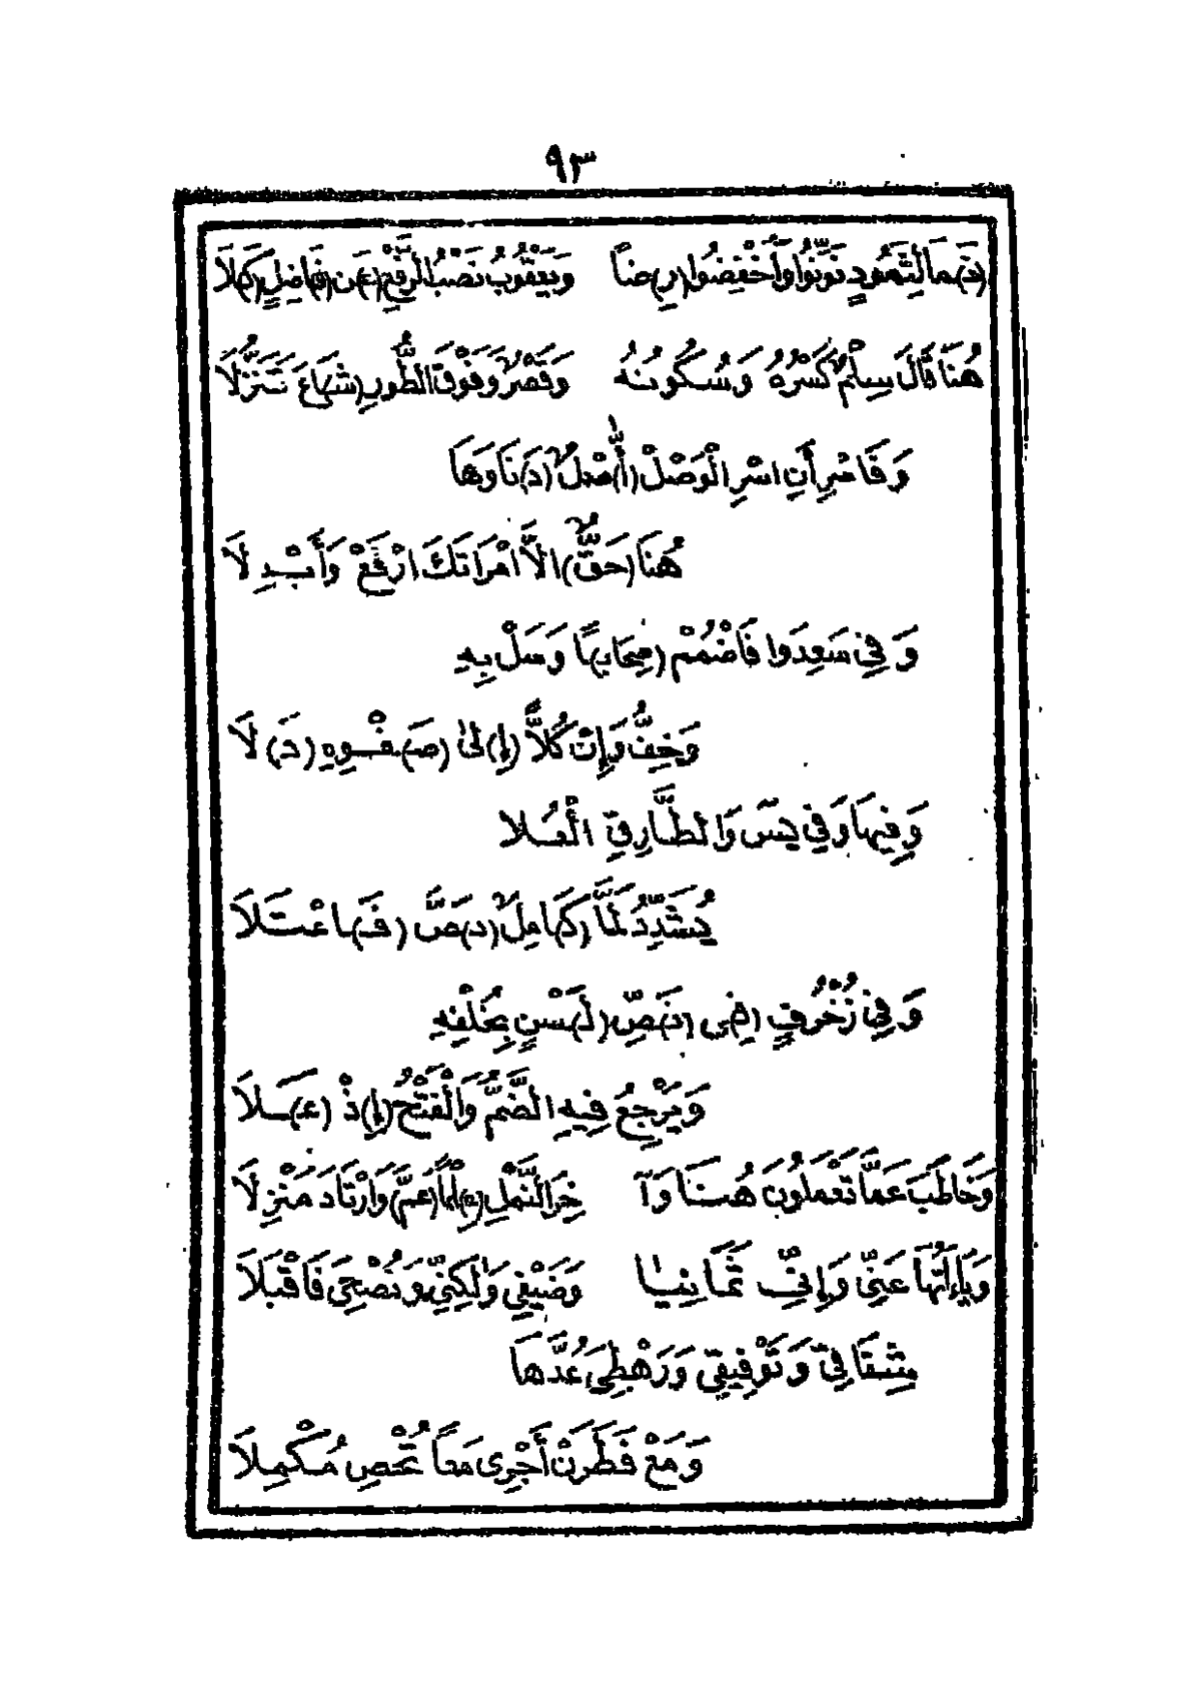 ٩٣
(نَـ)ـمَا لِثَمُودٍ نَوِّنُوا وَاخْفِضُوا (رِ)ضًا وَيَعْقُوبُ نَصْبُ الرَّفْعِ (عَـ)ـن (فَـ)ـاضِلٍ (كَـ)ـلَا
هُنَا قَالَ سِلْمٌ كَسْرُهُ وَسُكُونُهُ وَقَصْرٌ وَفَوْقَ الطُّورِ (شَـ)ـاعَ تَنَزُّلَا
وَفَاسْرِ أَنِ اسْرِ الْوَصْلُ (أَ)صْلٌ (دَ)نَا وَهَا
هُنَا (حَقٌّ) الاَّ امْرَاتَكَ ارْفَعْ وَأَبْدِلَا
وَفِي سَعِدُوا فَاضْمُمْ (صِحَابـ)ـًا وَسَلْ بِهِ
وَخِفُّ وَإِنْ كُلاًّ (إِ)لَىٰ (صَـ)ـفْوِهِ (دَ)لَا
وَفِيهَا وَفِي يس وَالطَّارِقِ الْعُلَا
يُشَدِّدُ لَمَّا (كَـ)ـامِلٌ (نَـ)ـصَّ (فَـ)ـاعْتَلَا
وَفِي زُخْرُفٍ (فِـ)ـي (نَـ)ـصِّ (لُـ)ـسْنٍ بِخُلْفِهِ
وَيَرْجِعُ فِيهِ الضَّمُّ وَالْفَتْحُ (إِ)ذْ (عَـ)ـلَا
وَخَاطَبَ عَمَّا تَعْمَلُونَ هُنَا وَآ خِرَ النَّمْلِ (عِـ)ـلْمًا (عَمَّ) وَارْتَادَ مَنْزِلَا
وَيَاءَاتُهَا عَنِّي وَإِنِّي ثَمَانِيًا وَضَيْفِي وَلٰكِنِّي وَنُصْحِيَ فَاقْبَلَا
شِقَاقِي وَتَوْفِيقِي وَرَهْطِيَ عُدَّهَا
وَمَعْ فَطَرَنْ أَجْرِي مَعًا تُحْصِ مُكْمِلَا